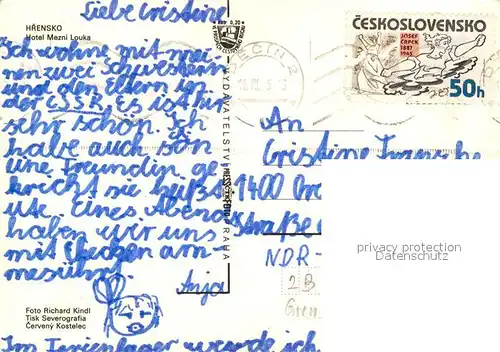 HŘENSKO
Hotel Mezní Louka
Liebe Cristine
Ich wohne mit mei-
nen zwei Schwestern
und den Eltern in
der ČSSR. Es ist hir
sehr schön. Ich
habe auch schon
eine Freundin ge-
sie heißt
ute. Eines Abend
haben wir uns
mit
Anja
Foto Richard Kindl
Tisk Severografia
Červený Kostelec
Im Ferienlager wurde ich
VYDAVATELSTVÍ PRESSFOTO PRAHA
0,20
DĚČÍN 2
ČESKOSLOVENSKO
JOSEF
ČAPEK
1887
1945
50h
An
Cristine
1400
Straße
NDR-
privacy protection
Datenschutz
2B